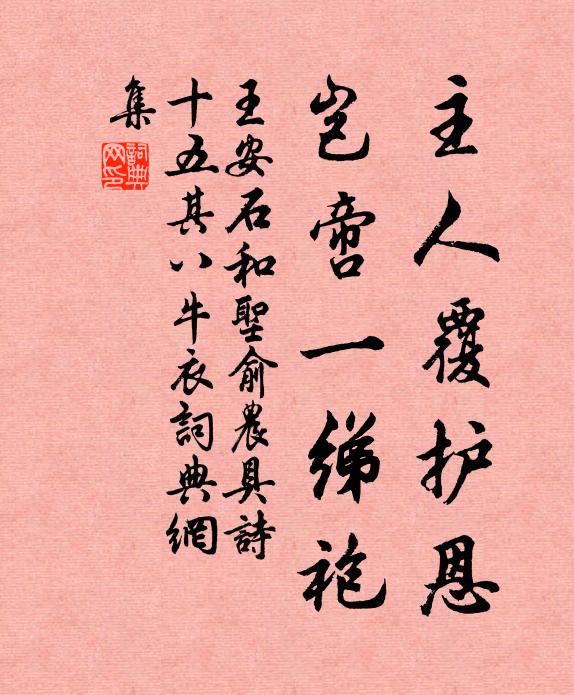 主人覆护恩
岂啻一绨袍
王安石和聖俞農具詩
十五其八牛衣詞典網
集
詞典
网印